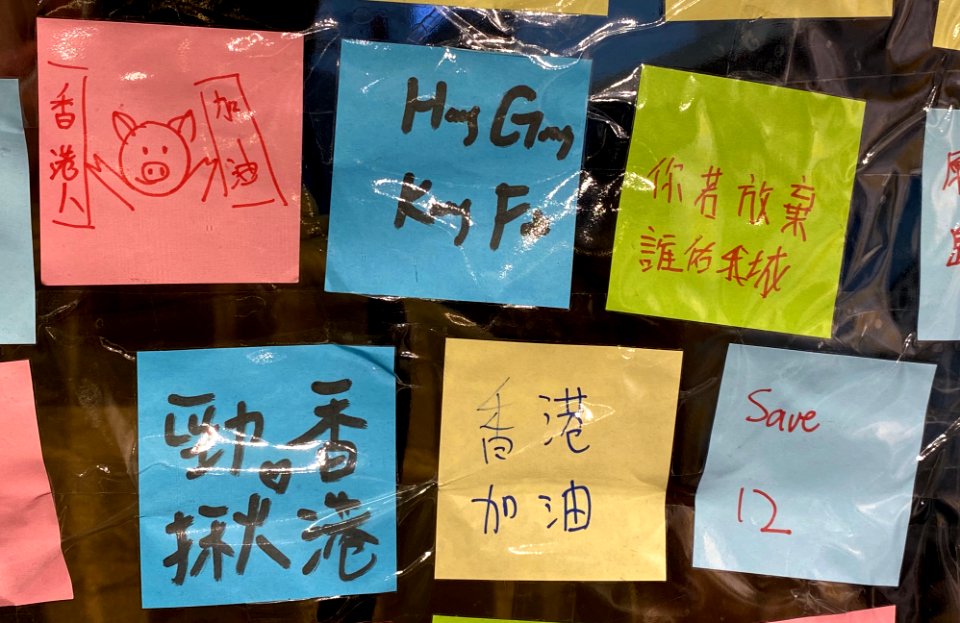 香港人
加油
Hong Gong
Kong
你若放棄
誰佑我城
香港
勁揪
香港
加油
Save
12